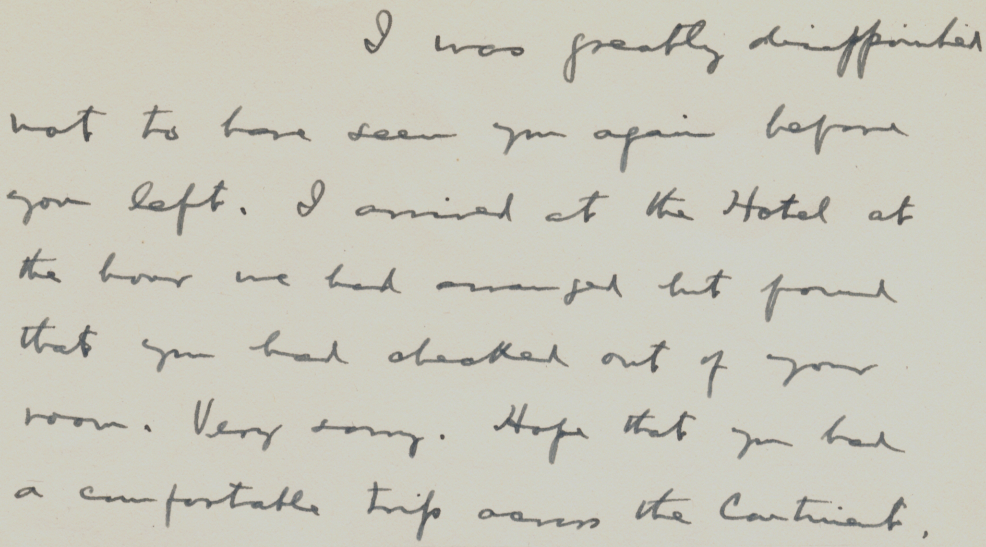 I was greatly disappointed
not to have seen you again before
you left. I arrived at the Hotel at
the hour we had arranged but found
that you had checked out of your
room. Very sorry. Hope that you had
a comfortable trip across the Continent.